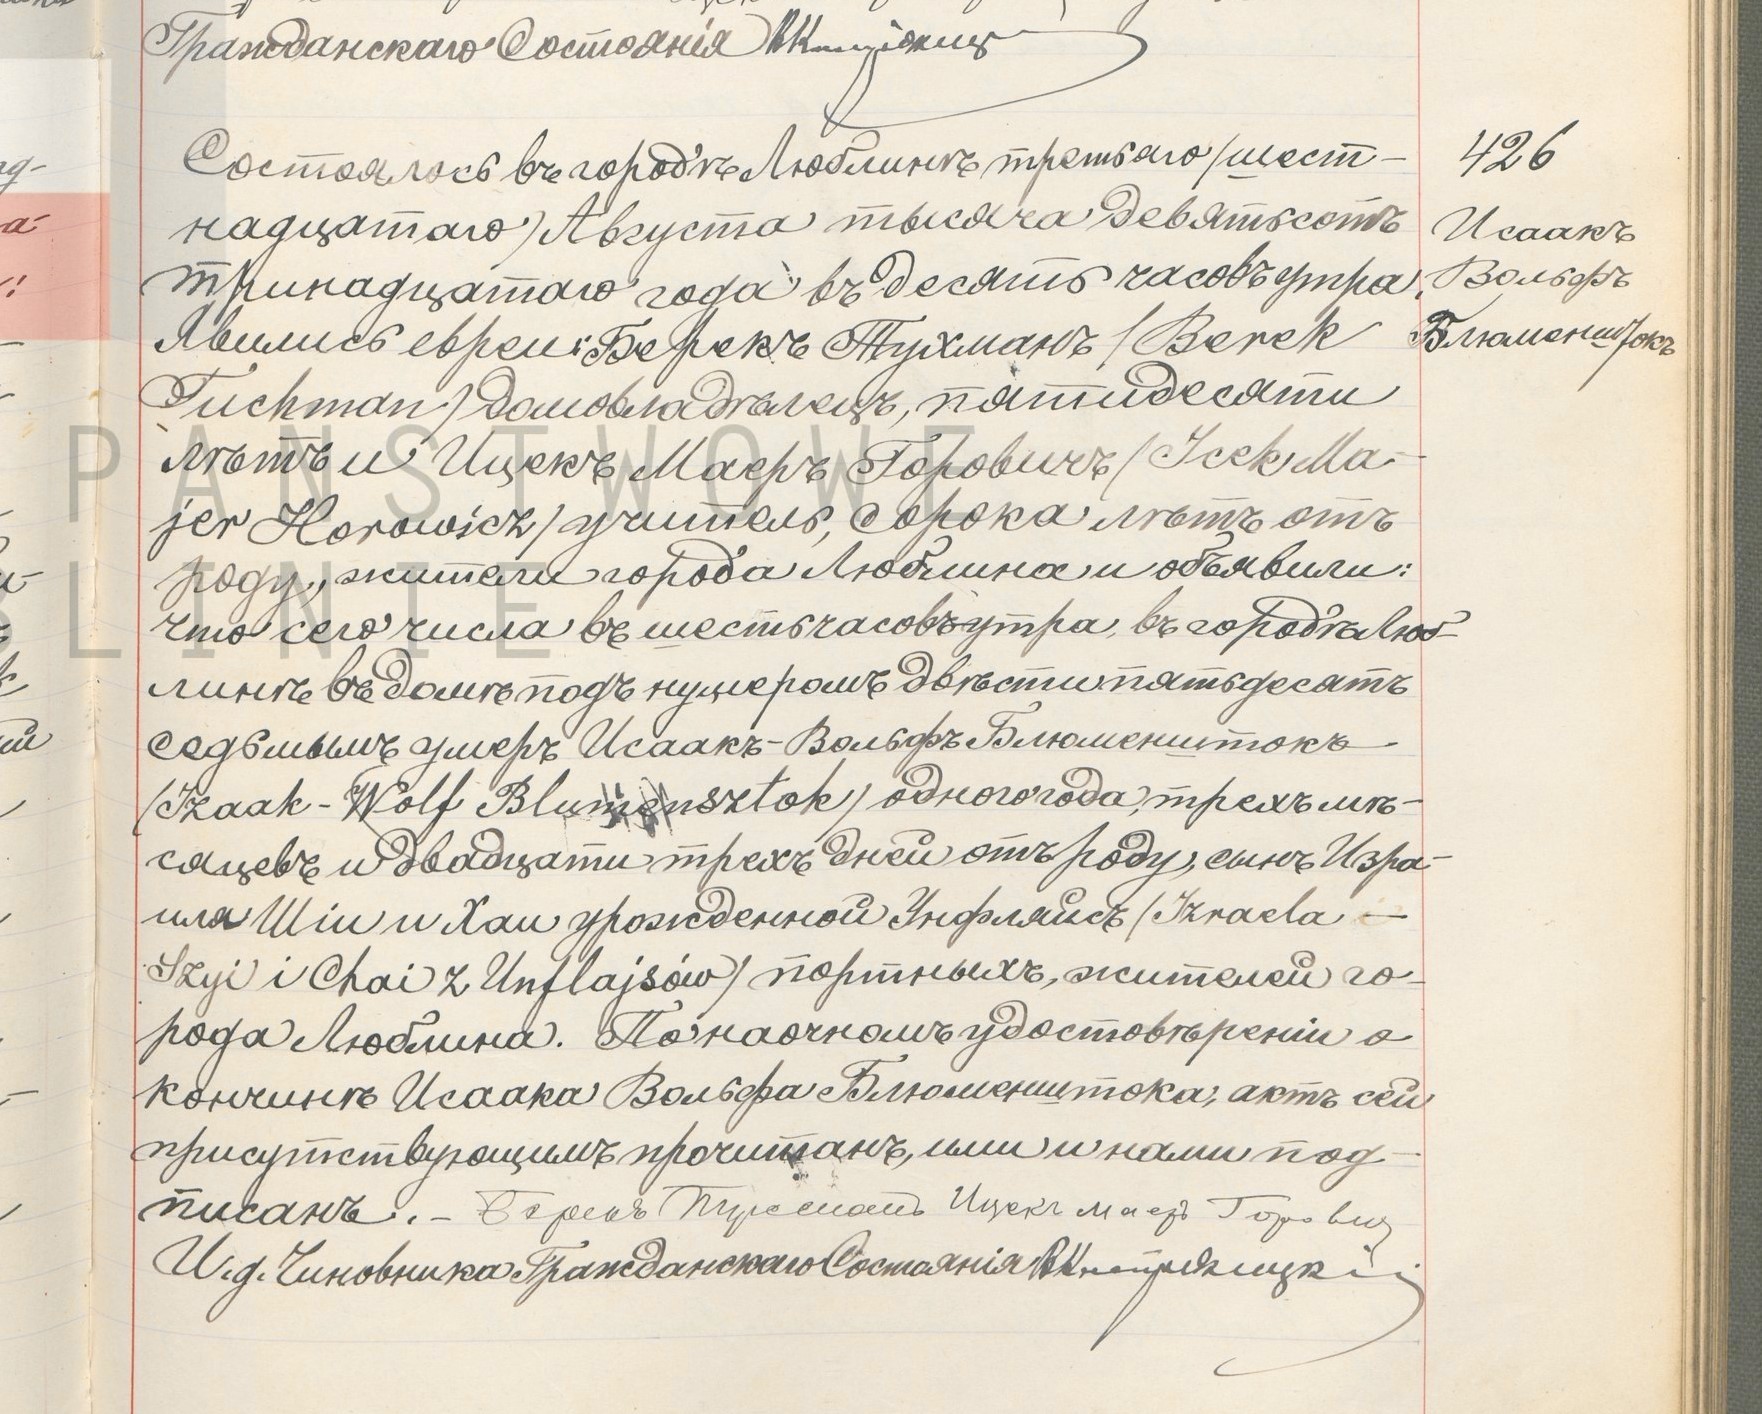 Гражданскаго Состоянія
Состоялось въ городѣ Люблинѣ третьяго /шест-
надцатаго) Августа тысяча девятьсотъ
тринадцатаго года въ десять часовъ утра.
Явились евреи: Берекъ Тухманъ /Berek
Tuchman) домовладѣлецъ, пятидесяти
лѣтъ и Ицекъ Маеръ Горовичъ (Icek Ma-
jer Horowicz) учитель, сорока лѣтъ отъ
роду, жители города Люблина и объявили:
что сего числа въ шесть часовъ утра, въ городѣ Люб-
линѣ въ домѣ подъ нумеромъ двѣсти пятьдесятъ
седьмымъ умеръ Исаакъ-Вольфъ Блюменштокъ
(Izaak-Wolf Blumensztok) одного года, трехъ мѣ-
сяцевъ и двадцати трехъ дней отъ роду, сынъ Изра-
иля Шіи и Хаи урожденной Унфляйсъ (Izraela-
Szyi i Chai z Unflajsów) портныхъ, жителей го-
рода Люблина. По наочномъ удостовѣреніи о
кончинѣ Исаака Вольфа Блюменштока, актъ сей
присутствующимъ прочитанъ, ими и нами под-
писанъ. - Берекъ Тухманъ Ицекъ Маеръ Горовиц
И. д. Чиновника Гражданскаго Состоянія
426
Исаакъ
Вольфъ
Блюменштокъ
PAŃSTWOWE
LUBLINIE